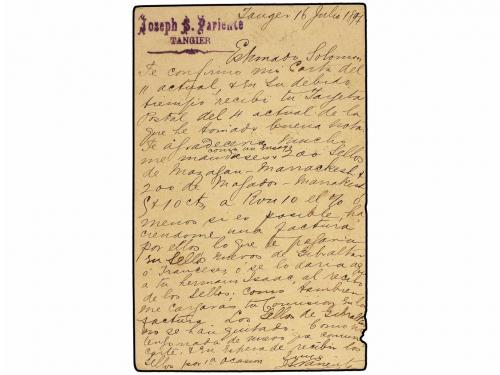 Joseph B. Pariente
TANGIER
Tanger 16 Julio 189
Estimado Solomon
Te confirmo mi Carta del
11 actual, & en su debido
tiempo recibi tu Tarjeta
Postal del 4 actual de la
que he tomado buena nota.
Te agradeceria mucho
me mandases 200 sellos
de Mazagan - Marrakesh &
200 de Mogador - Marrakesh
5 & 10 cts, a 10 el % o
menos si es posible, ha
ciendome una factura
por ellos lo que te pagaria
en sellos nuevos de Gibraltar
o Franceses o se lo daria aqui
a tu hermano Isaac, al recibo
de los sellos. Como tambien
me cargarás tu Comision en la
factura. Los sellos de Gibraltar
no se han quitado. Como
de nuevo
corte, & en espera de recibir los
sellos por 1ª ocasion
Pariente